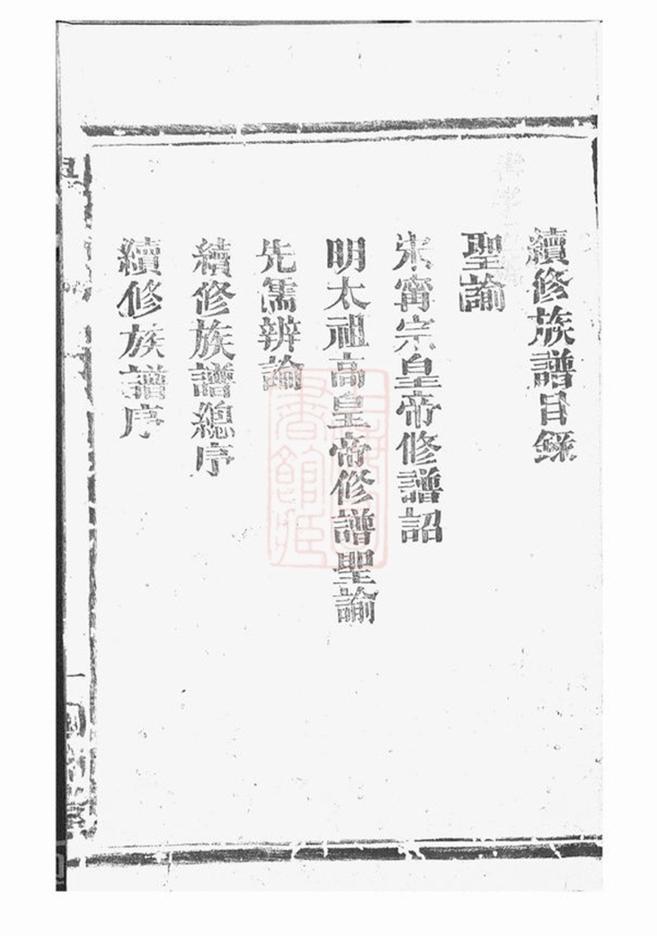 續修族譜目錄
聖諭
宋甯宗皇帝修譜詔
明太祖高皇帝修譜聖諭
先儒辨論
續修族譜總序
續修族譜序